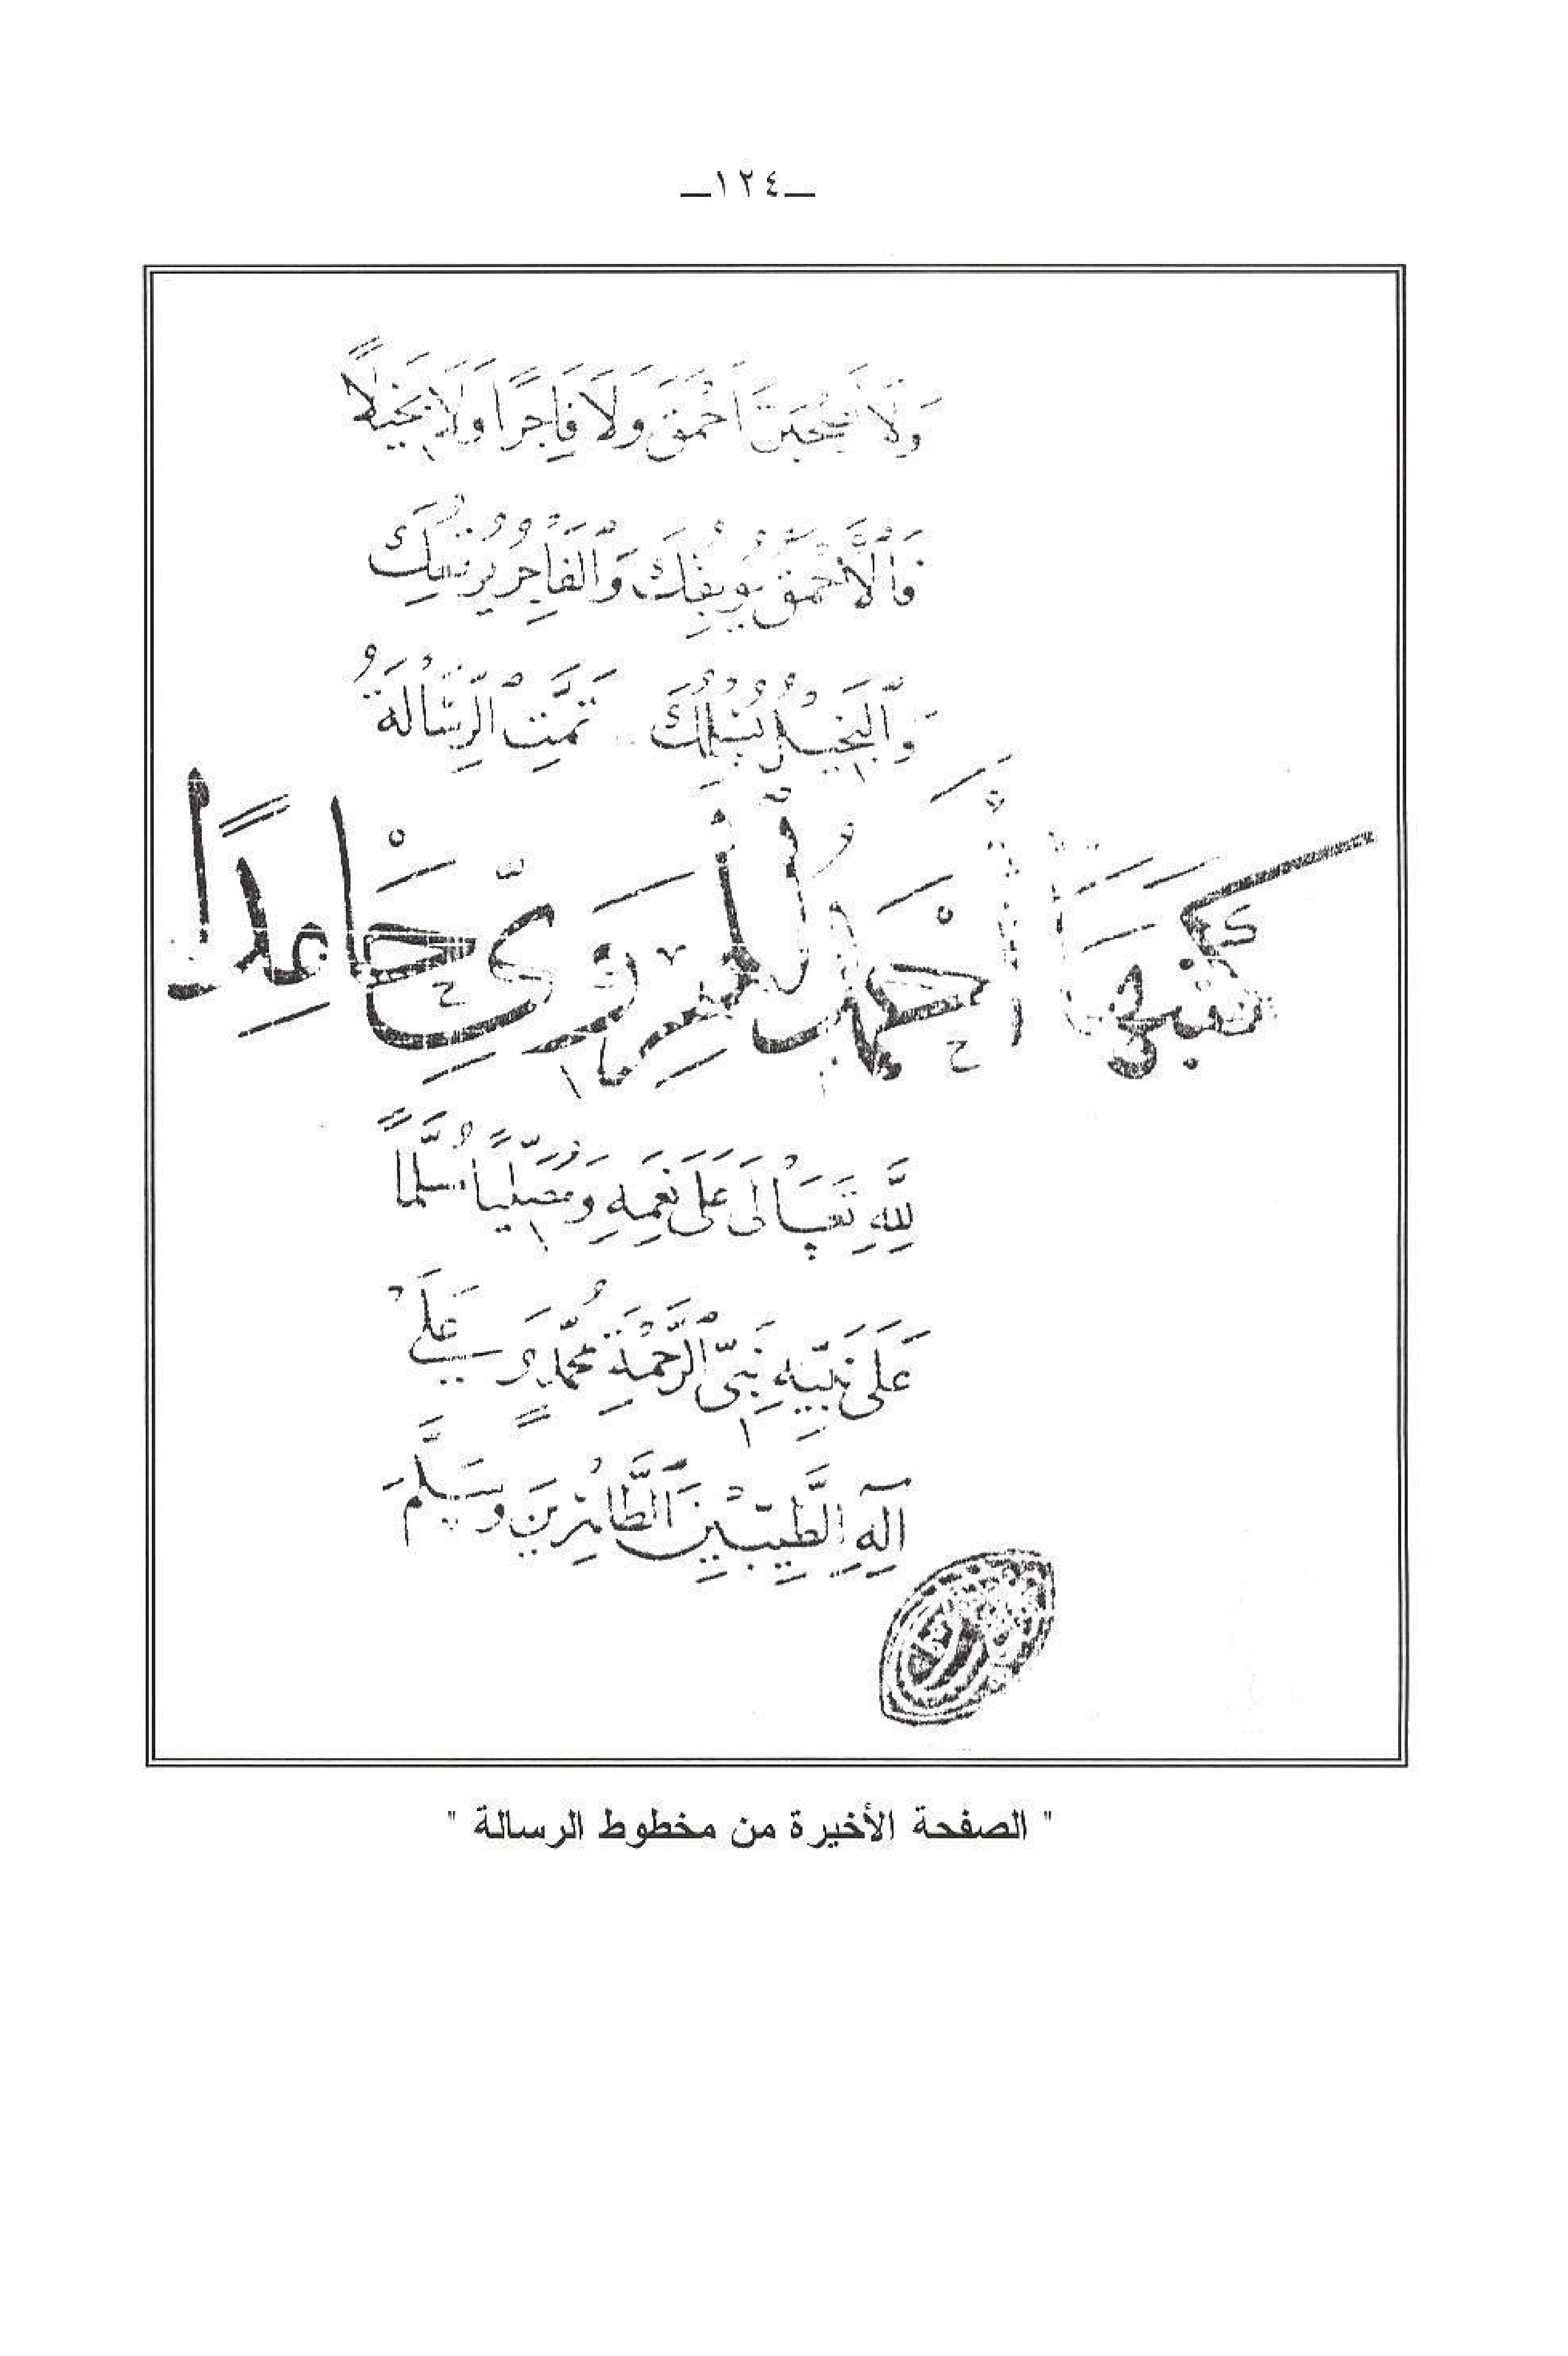 ـ١٢٤ـ
وَلَا تَصْحَبَنَّ أَحْمَقَ وَلَا فَاجِرًا وَلَا بَخِيلًا
فَالْأَحْمَقُ يُوبِقُكَ وَالْفَاجِرُ
وَالْبَخِيلُ تَمَّتِ الرِّسَالَةُ
كَتَبَهَا أَحْمَدُ حَامِدًا
لِلَّهِ تَعَالَى عَلَى نِعَمِهِ وَمُصَلِّيًا مُسَلِّمًا
عَلَى نَبِيِّهِ نَبِيِّ الرَّحْمَةِ مُحَمَّدٍ وَعَلَى
آلِهِ الطَّيِّبِينَ الطَّاهِرِينَ وَسَلَّمَ
" الصفحة الأخيرة من مخطوط الرسالة "